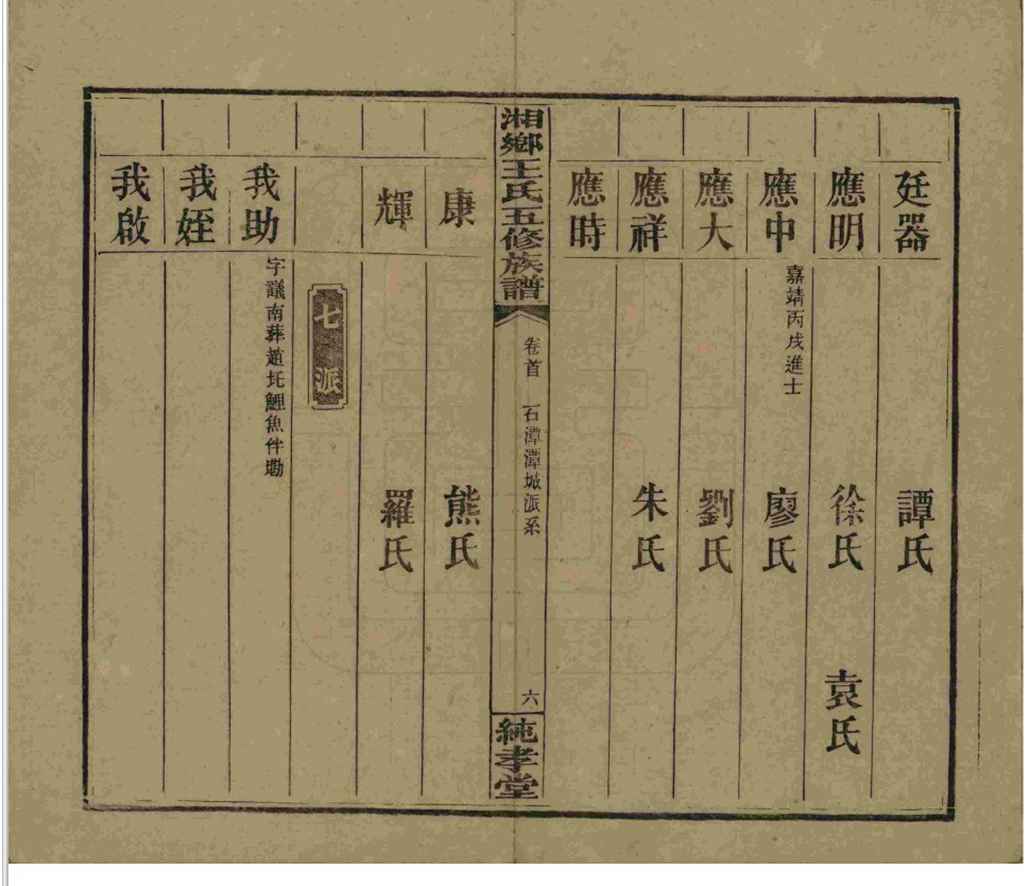 廷器 譚氏
應明 徐氏 袁氏
應中 嘉靖丙戌進士 廖氏
應大 劉氏
應祥 朱氏
應時
湘鄉王氏五修族譜 卷首 石潭潭城派系 六 純孝堂
康 熊氏
輝 羅氏
七派
我助 字議南葬趙圫鯉魚伴塘
我姪
我啟